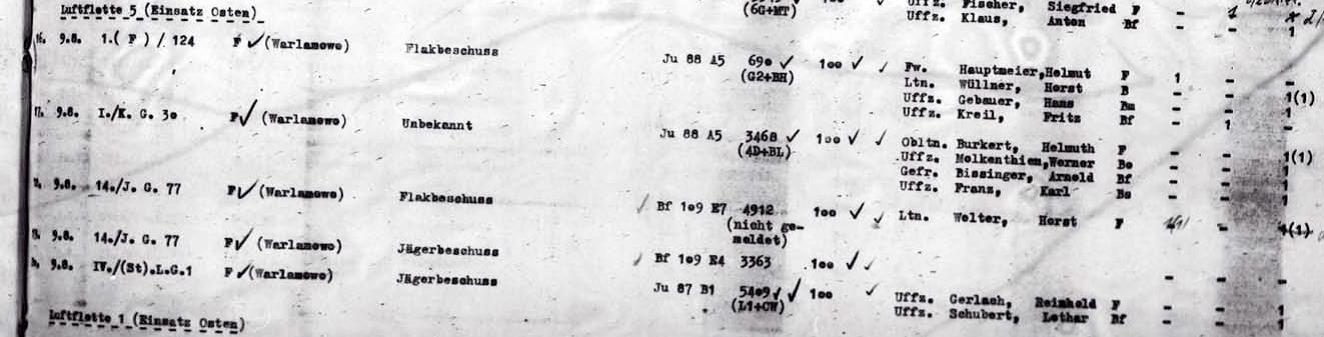 Luftflotte 5 (Einsatz Osten)
(6G+MT) Uffz. Fischer, Siegfried F -
Uffz. Klaus, Anton Bf - - 1
9.8. 1.( F ) / 124 F ✓ (Warlamowo) Flakbeschuss Ju 88 A5 690 ✓ 100 ✓ ✓ Fw. Hauptmeier, Helmut F 1 - -
(G2+BH) Ltn. Wüllner, Horst B - - 1(1)
Uffz. Gebauer, Hans Bm - - 1
Uffz. Kreil, Fritz Bf - 1 -
17. 9.8. I./K. G. 30 F✓ (Warlamowo) Unbekannt Ju 88 A5 3468 ✓ 100 ✓ ✓ Obltn. Burkert, Helmuth F - - 1(1)
(4D+BL) Uffz. Molkenthien, Werner Bo - - 1
Gefr. Bissinger, Arnold Bf - - 1
Uffz. Franz, Karl Bs - - 1
9.8. 14./J. G. 77 F✓ (Warlamowo) Flakbeschuss Bf 109 E7 4912 100 ✓ ✓ Ltn. Welter, Horst F - 1(1)
(nicht ge-
meldet)
9.8. 14./J. G. 77 F✓ (Warlamowo) Jägerbeschuss Bf 109 E4 3363 100 ✓ ✓ - - -
9.8. IV./(St).L.G.1 F ✓ (Warlamowo) Jägerbeschuss Ju 87 B1 5409 ✓ ✓ 100 ✓ Uffz. Gerlach, Reinhold F - - 1
(L1+CW) Uffz. Schubert, Lothar Bf - - 1
Luftflotte 1 (Einsatz Osten)